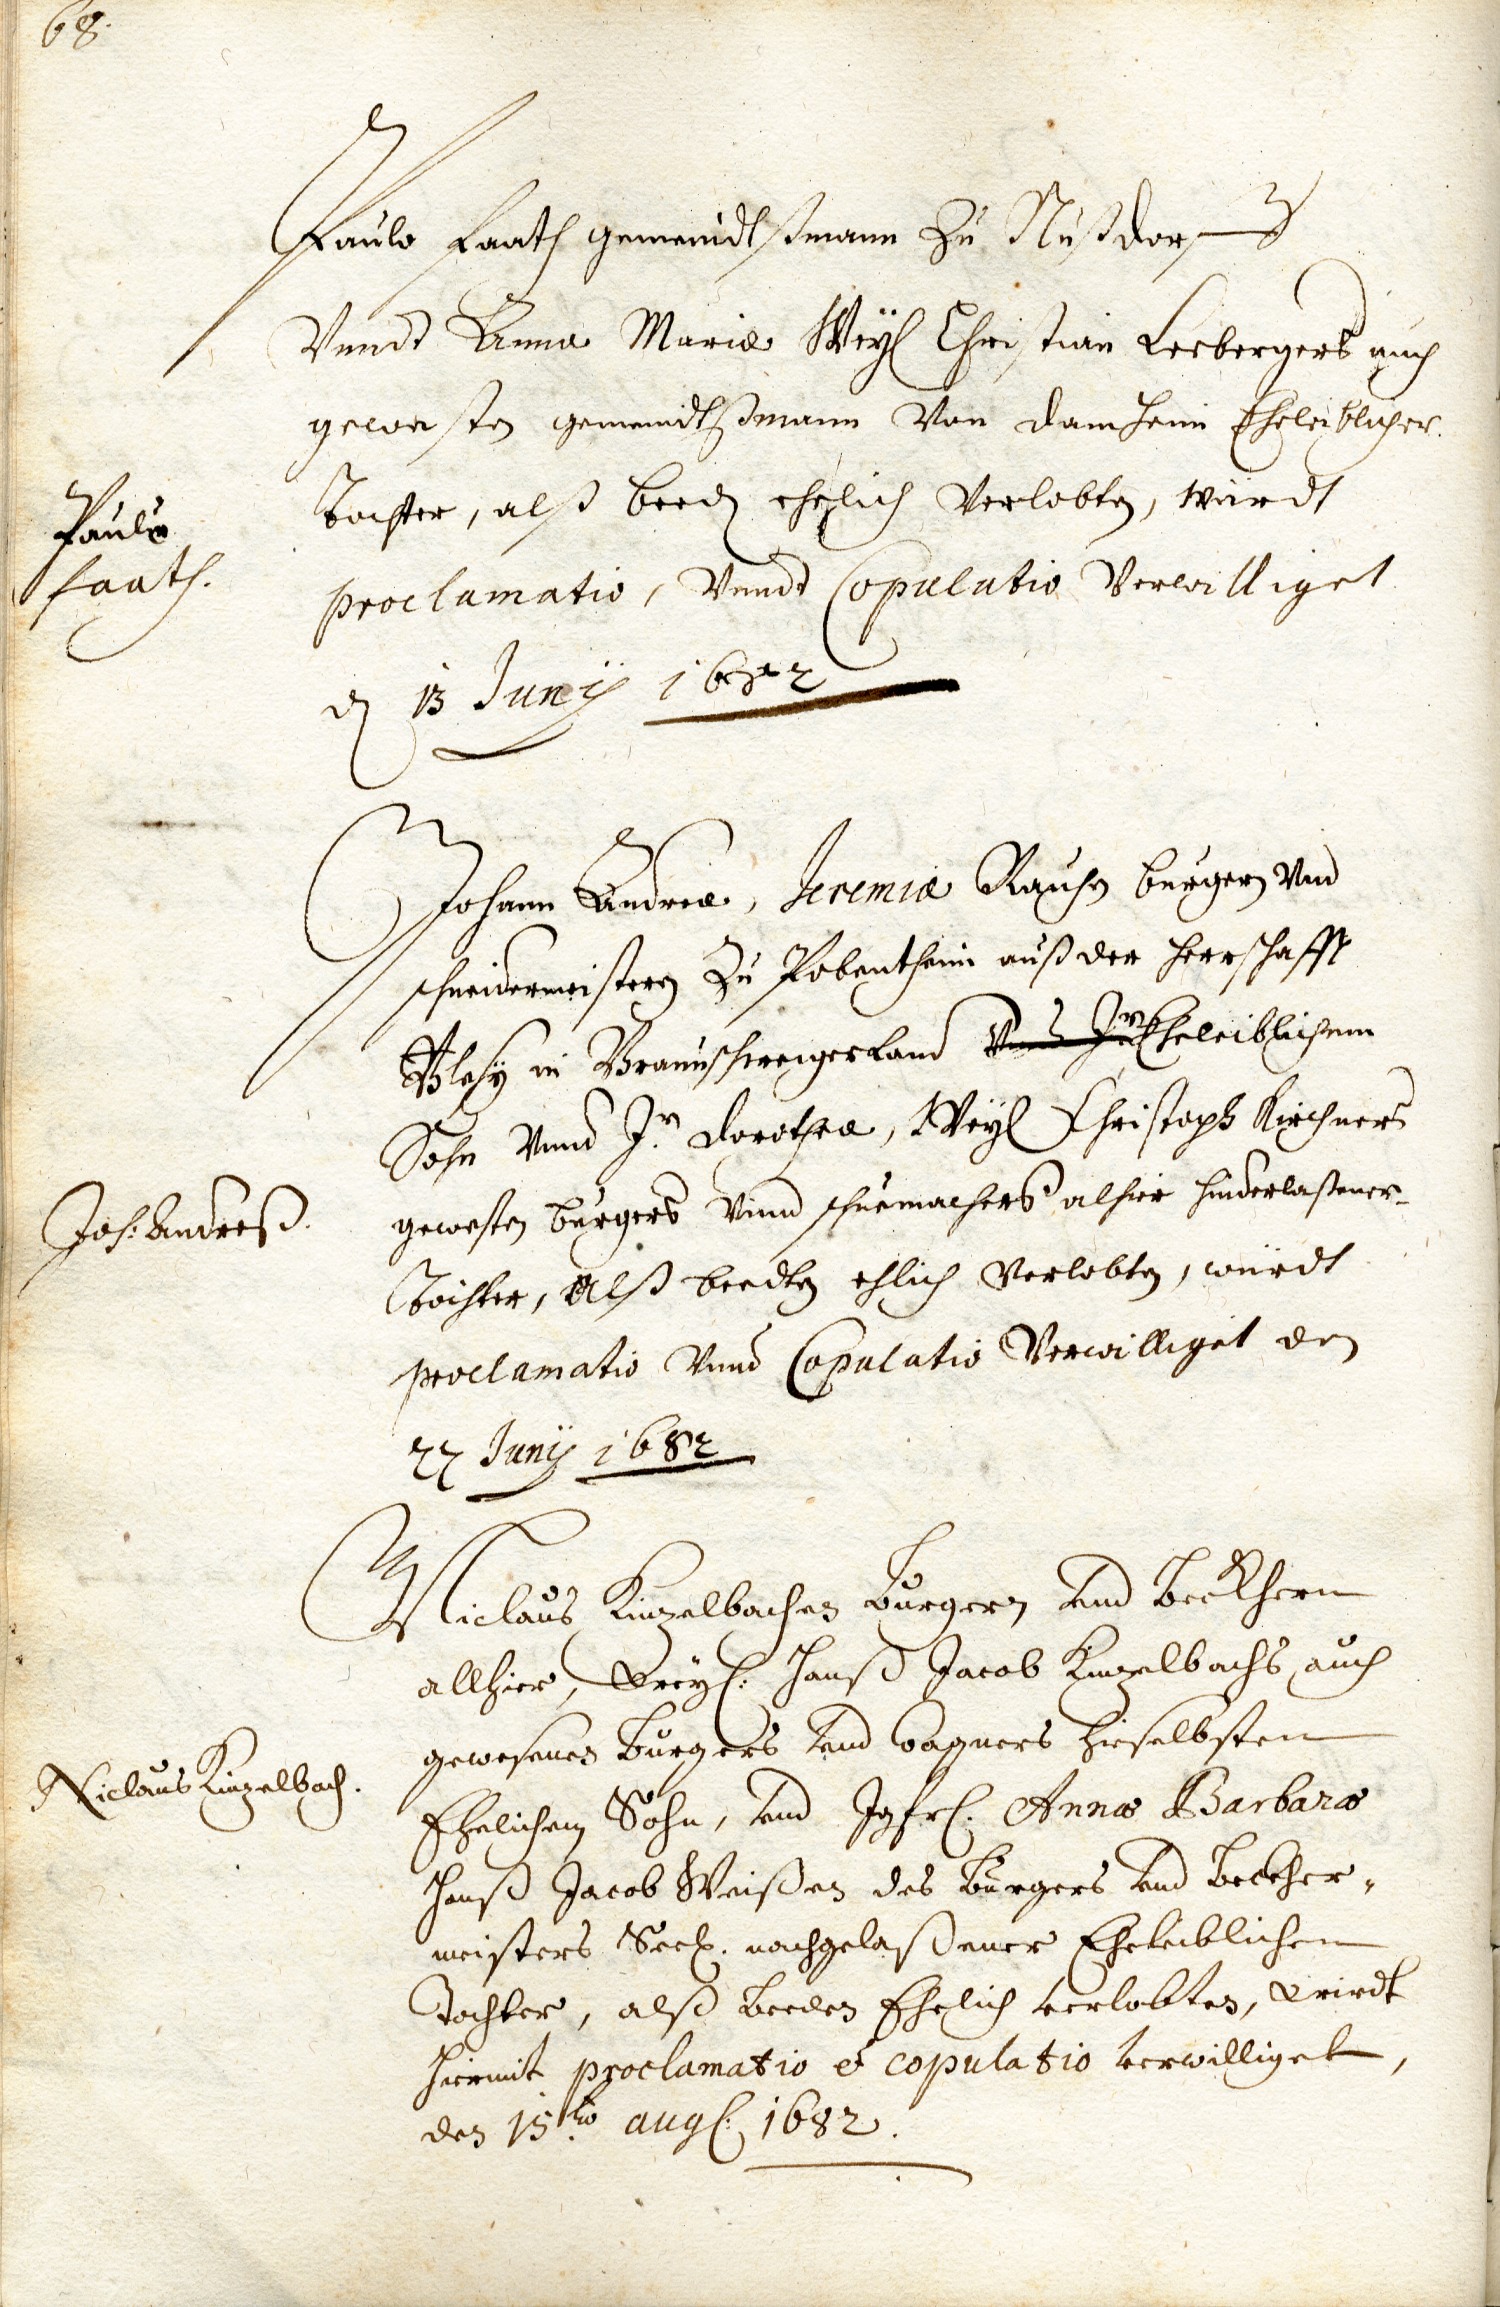 68.
Paulo Faath gemeindtßmann Zu Nußdorf
Vnndt Anna Maria Weyl Christian Leebergers auch
gewesten gemeindtßmann Von Damheim Eheleiblicher
Tochter, alß beed ehelich Verlobten, würdt
Paulo
Faath.
proclamatio, Vnndt Copulatio Verwilliget
d 13 Junÿ 1682
Johann Andrea, Jeremiæ Rauhen burgern Vnd
schneidermeistern Zu Pobentheim auß der Herrschafft
Plesÿ in Braunschweigerland Eheleiblichem
Sohn Vnnd Jr. Dorothea, Weyl Christoph Kirchners
Joh: Andreß.
gewesten burgers Vnnd schuemachers alhier hinderlaßener
Tochter, Alß beedten ehlich Verlobten, würdt
proclamatio Vnnd Copulatio Verwilliget den
22 Junÿ 1682
Niclaus Kinzelbachen Burgern vnd Beckhern
allhier, Weyl: Hanß Jacob Kinzelbachs, auch
gewesenen Burgers vnd wagners hieselbsten
Niclaus Kinzelbach.
Ehelichem Sohn, vnd Jgfrl. Annæ Barbaræ
Hanß Jacob Weißen des Burgers vnd Beckher-
meisters Seel. nachgelaßener Eheleiblichen
Tochter, alß beeden Ehelich verlobten, wirdt
hiermit proclamatio et copulatio verwilliget,
den 15ten aug: 1682.